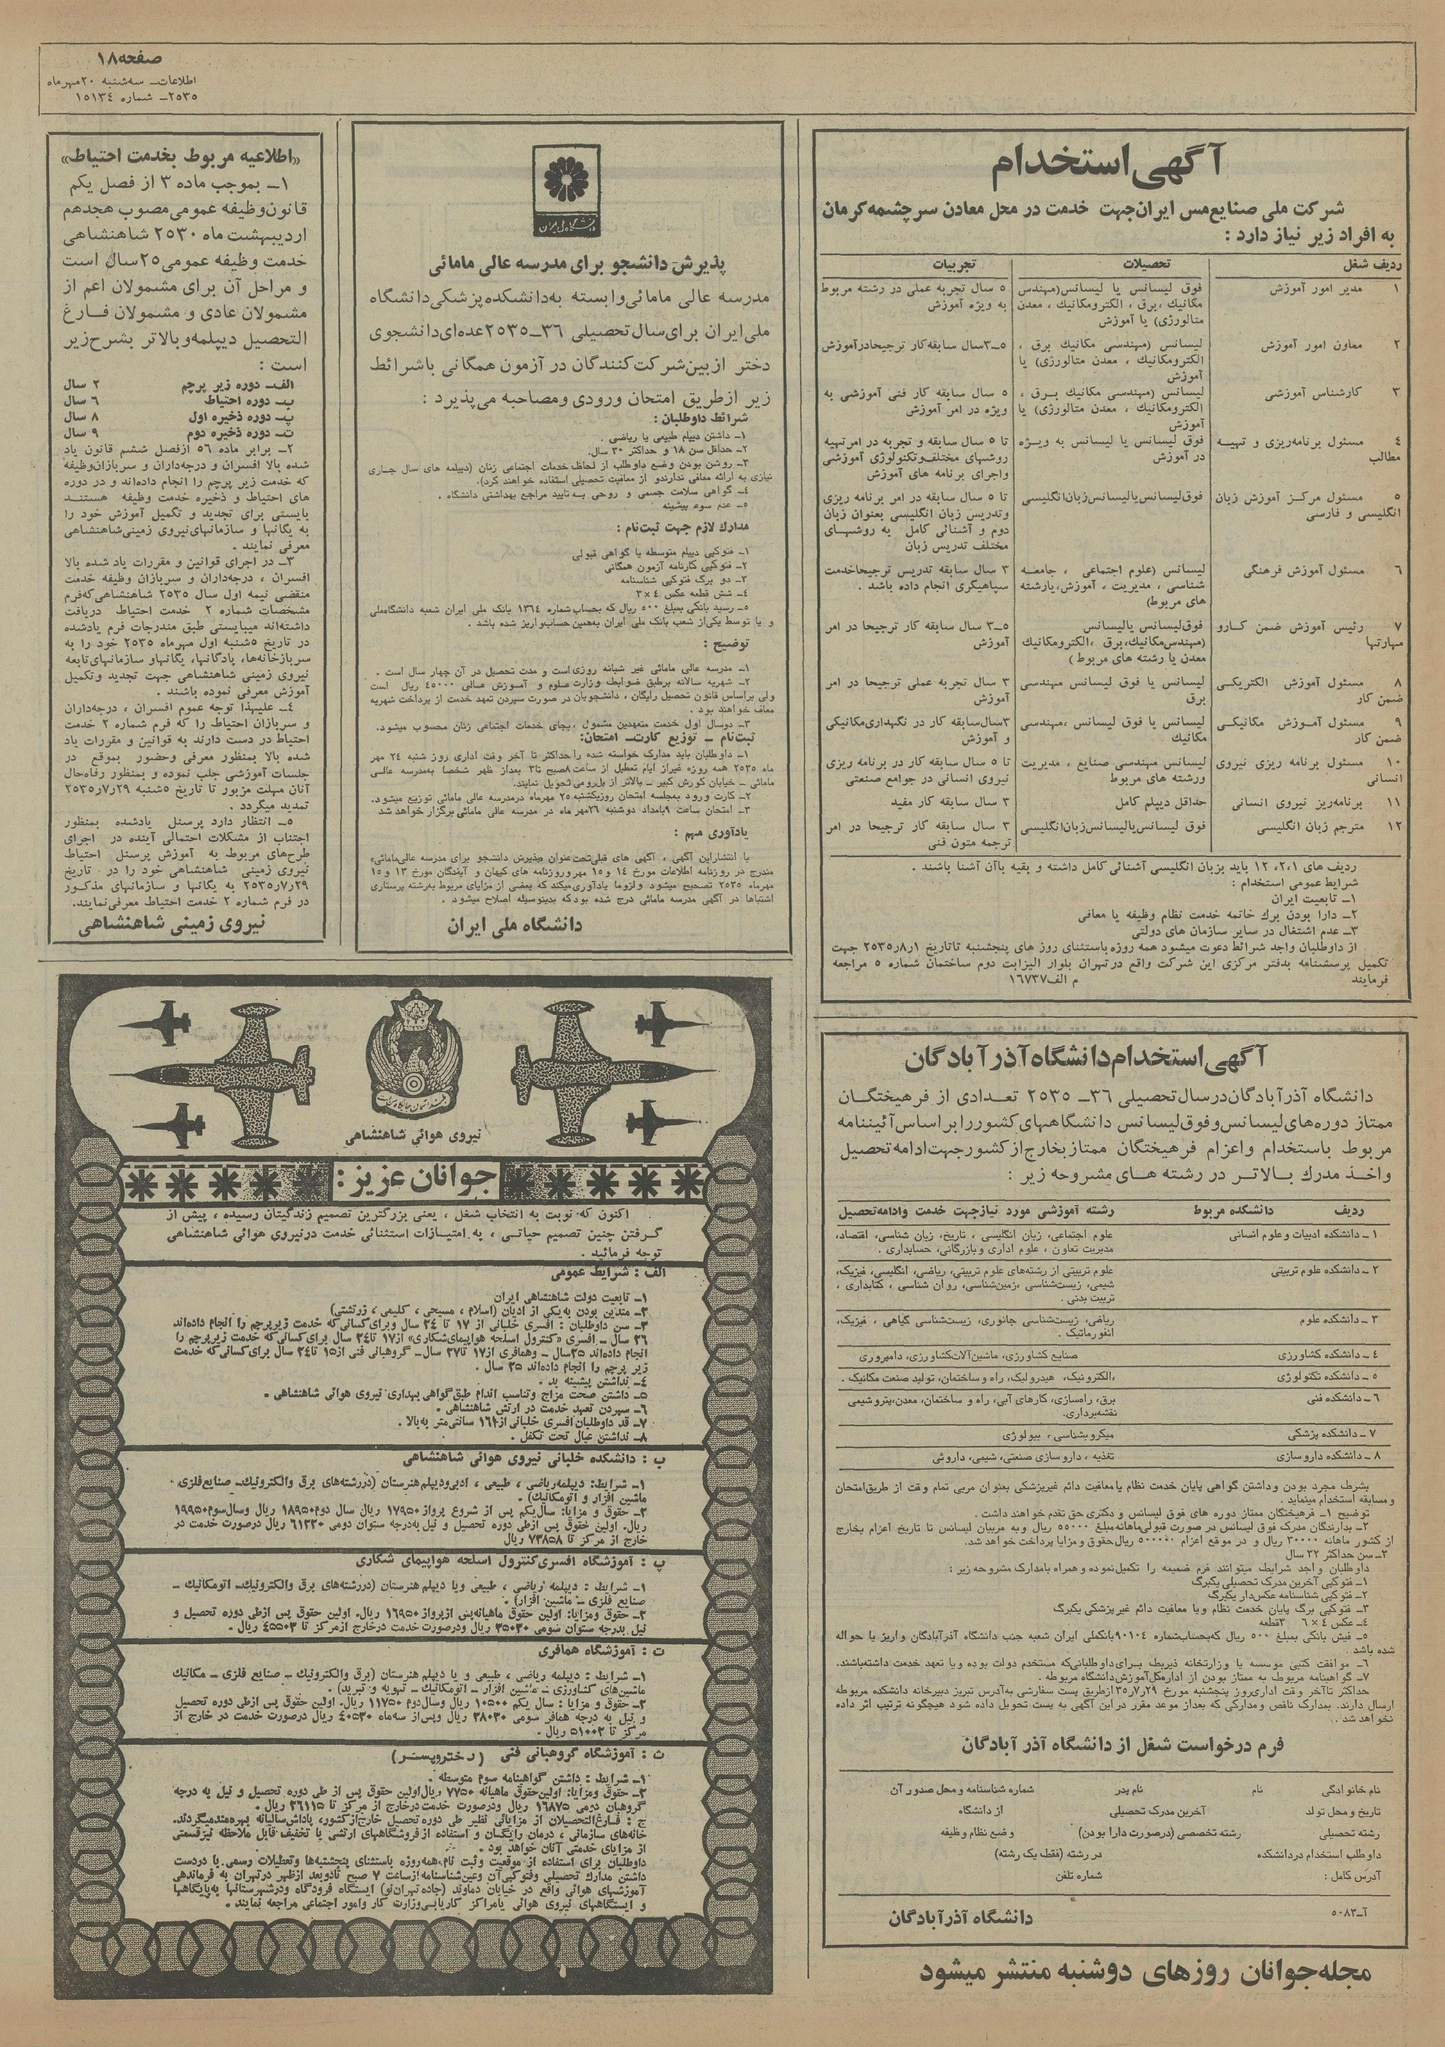 صفحه ۱۸
اطلاعات_ سه‌شنبه ۲۰ مهرماه
۲۵۳۵_ شماره ۱۵۱۳٤
آگهی استخدام
شرکت ملی صنایع مس ایران جهت خدمت در محل معادن سرچشمه کرمان
به افراد زیر نیاز دارد :
ردیف شغل تحصیلات تجربیات
۱ مدیر امور آموزش فوق لیسانس یا لیسانس (مهندس ۵ سال تجربه عملی در رشته مربوط
مکانیک ،برق ، الکترومکانیک ، معدن به ویژه آموزش
متالورژی) یا آموزش
۲ معاون امور آموزش لیسانس (مهندسی مکانیک برق ، ۵_۳ سال سابقه کار ترجیحا در آموزش
الکترومکانیک ، معدن متالورژی) یا
آموزش
۳ کارشناس آموزشی لیسانس (مهندسی مکانیک برق ، ۵ سال سابقه کار فنی آموزشی به
الکترومکانیک ، معدن متالورژی) یا ویژه در امر آموزش
آموزش
٤ مسئول برنامه‌ریزی و تهیه فوق لیسانس یا لیسانس به ویژه تا ۵ سال سابقه و تجربه در امر تهیه
مطالب در آموزش روشهای مختلف وتکنولوژی آموزشی
واجرای برنامه های آموزش
۵ مسئول مرکز آموزش زبان فوق لیسانس یا لیسانس زبان انگلیسی تا ۵ سال سابقه در امر برنامه ریزی
انگلیسی و فارسی وتدریس زبان انگلیسی بعنوان زبان
دوم و آشنائی کامل به روشهای
مختلف تدریس زبان
٦ مسئول آموزش فرهنگی لیسانس (علوم اجتماعی ، جامعه ۳ سال سابقه تدریس ترجیحا خدمت
شناسی ، مدیریت ، آموزش، یارشته سپاهیگری انجام داده باشد .
های مربوط)
۷ رئیس آموزش ضمن کار و فوق لیسانس یا لیسانس ۵_۳ سال سابقه کار ترجیحا در امر
مهارتها (مهندس مکانیک، برق ،الکترومکانیک آموزش
معدن یا رشته های مربوط)
۸ مسئول آموزش الکتریکی لیسانس یا فوق لیسانس مهندسی ۳ سال تجربه عملی ترجیحا در امر
ضمن کار برق آموزش
۹ مسئول آموزش مکانیکی لیسانس یا فوق لیسانس ،مهندسی ۳ سال سابقه کار در نگهداری مکانیکی
ضمن کار مکانیک و آموزش
۱۰ مسئول برنامه ریزی نیروی لیسانس مهندسی صنایع ، مدیریت تا ۵ سال سابقه کار در برنامه ریزی
انسانی ورشته های مربوط نیروی انسانی در جوامع صنعتی
۱۱ برنامه‌ریز نیروی انسانی حداقل دیپلم کامل ۳ سال سابقه کار مفید
۱۲ مترجم زبان انگلیسی فوق لیسانس یا لیسانس زبان انگلیسی ۳ سال سابقه کار ترجیحا در امر
ترجمه متون فنی
ردیف های ۲،۱، ۱۲ باید بزبان انگلیسی آشنائی کامل داشته و بقیه باآن آشنا باشند .
شرایط عمومی استخدام :
۱_ تابعیت ایران
۲_ دارا بودن برک خاتمه خدمت نظام وظیفه یا معافی
۳_ عدم اشتغال در سایر سازمان های دولتی
از داوطلبان واجد شرائط دعوت میشود همه روزه باستثنای روز های پنجشنبه تاتاریخ ۲۵۳۵ر۸ر۱ جهت
تکمیل پرسشنامه بدفتر مرکزی این شرکت واقع در تهران بلوار الیزابت دوم ساختمان شماره ۵ مراجعه
فرمایند م الف ۱٦۷۳۷
دانشگاه ملی ایران
پذیرش دانشجو برای مدرسه عالی مامائی
مدرسه عالی مامائی وابسته به دانشکده پزشکی دانشگاه
ملی ایران برای سال تحصیلی ۳٦_۲۵۳۵ عده‌ای دانشجوی
دختر از بین شرکت کنندگان در آزمون همگانی با شرائط
زیر از طریق امتحان ورودی ومصاحبه می‌پذیرد :
شرائط داوطلبان :
۱_ داشتن دیپلم طبیعی یا ریاضی .
۲_ حداقل سن ۱۸ و حداکثر ۳۰ سال.
۳_ روشن بودن وضع داوطلب از لحاظ خدمات اجتماعی زنان (دیپلمه های سال جاری
نیازی به ارائه معافی ندارندو از معافیت تحصیلی استفاده خواهند کرد).
٤_ گواهی سلامت جسمی و روحی به تایید مراجع بهداشتی دانشگاه .
۵_ عدم سوء پیشینه
مدارک لازم جهت ثبت‌نام :
۱_ فتوکپی دیپلم متوسطه یا گواهی قبولی
۲_ فتوکپی کارنامه آزمون همگانی
۳_ دو برگ فتوکپی شناسنامه
٤_ شش قطعه عکس ٤ × ۳
۵_ رسید بانکی بمبلغ ۵۰۰ ریال که بحساب شماره ۱۳٦٤ بانک ملی ایران شعبه دانشگاه ملی
و یا توسط یکی از شعب بانک ملی ایران به‌همین حساب واریز شده باشد .
توضیح :
۱_ مدرسه عالی مامائی غیر شبانه روزی است و مدت تحصیل در آن چهار سال است .
۲_ شهریه سالانه برطبق ضوابط وزارت علوم و آموزش عالی ٤۵۰۰۰ ریال است
ولی براساس قانون تحصیل رایگان ، دانشجویان در صورت سپردن تعهد خدمت از پرداخت شهریه
معاف خواهند بود .
۳_ دوسال اول خدمت متعهدین مشمول ، بجای خدمات اجتماعی زنان محسوب میشود.
ثبت‌نام _ توزیع کارت_ امتحان:
۱_ داوطلبان باید مدارک خواسته شده را حداکثر تا آخر وقت اداری روز شنبه ۲٤ مهر
ماه ۲۵۳۵ همه روزه غیراز ایام تعطیل از ساعت ۸صبح تا۲ بعداز ظهر شخصا به مدرسه عالی
مامائی _ خیابان کورش کبیر _ بالاتر از پل‌رومی تحویل نمایند.
۲_ کارت ورود به‌جلسه امتحان روزیکشنبه ۲۵ مهرماه درمدرسه عالی مامائی توزیع میشود.
۳_ امتحان ساعت ۹بامداد دوشنبه ۲٦مهر ماه در مدرسه عالی مامائی برگزار خواهد شد
یادآوری مهم :
با انتشار این آگهی ، آگهی های قبلی تحت عنوان «پذیرش دانشجو برای مدرسه عالی مامائی»
مندرج در روزنامه اطلاعات مورخ ۱٤ و ۱۵ مهر وروزنامه های کیهان و آیندگان مورخ ۱۳ و ۱۵
مهرماه ۲۵۳۵ تصحیح میشود ولزوما یادآوری میکند که بعضی از مزایای مربوط به‌رشته پرستاری
اشتباها در آگهی مدرسه مامائی درج شده بود که بدینوسیله اصلاح میشود .
دانشگاه ملی ایران
«اطلاعیه مربوط بخدمت احتیاط»
۱_ بموجب ماده ۳ از فصل یکم
قانون وظیفه عمومی مصوب هجدهم
اردیبهشت ماه ۲۵۳۰ شاهنشاهی
خدمت وظیفه عمومی ۲۵سال است
و مراحل آن برای مشمولان اعم از
مشمولان عادی و مشمولان فارغ
التحصیل دیپلمه و بالاتر بشرح زیر
است :
الف_ دوره زیر پرچم ۲ سال
ب_ دوره احتیاط ٦ سال
پ_ دوره ذخیره اول ۸ سال
ت_ دوره ذخیره دوم ۹ سال
۲_ برابر ماده ۵٦ ازفصل ششم قانون یاد
شده بالا افسران و درجه‌داران و سربازان وظیفه
که خدمت زیر پرچم را انجام داده‌اند و در دوره
های احتیاط و ذخیره خدمت وظیفه هستند
بایستی برای تجدید و تکمیل آموزش خود را
به یگانها و سازمانهای نیروی زمینی شاهنشاهی
معرفی نمایند .
۳_ در اجرای قوانین و مقررات یاد شده بالا
افسران ، درجه‌داران و سربازان وظیفه خدمت
منقضی نیمه اول سال ۲۵۳۵ شاهنشاهی که فرم
مشخصات شماره ۲ خدمت احتیاط دریافت
داشته‌اند میبایستی طبق مندرجات فرم یادشده
در تاریخ ۵شنبه اول مهرماه ۲۵۳۵ خود را به
سربازخانه‌ها، پادگانها، یگانها و سازمانهای تابعه
نیروی زمینی شاهنشاهی جهت تجدید وتکمیل
آموزش معرفی نموده باشند .
٤_ علیهذا توجه عموم افسران ، درجه‌داران
و سربازان احتیاط را که فرم شماره ۲ خدمت
احتیاط در دست دارند به قوانین و مقررات یاد
شده بالا بمنظور معرفی وحضور بموقع در
جلسات آموزشی جلب نموده و بمنظور رفاه حال
آنان مهلت مزبور تا تاریخ ۵شنبه ۲۹ر۷ر۲۵۳۵
تمدید میگردد .
۵_ انتظار دارد پرسنل یادشده بمنظور
اجتناب از مشکلات احتمالی آینده در اجرای
طرحهای مربوط به آموزش پرسنل احتیاط
نیروی زمینی شاهنشاهی خود را در تاریخ
۲۹ر۷ر۲۵۳۵ به یگانها و سازمانهای مذکور
در فرم شماره ۲ خدمت احتیاط معرفی نمایند.
نیروی زمینی شاهنشاهی
نیروی هوائی شاهنشاهی
جوانان عزیز :
اکنون که نوبت به انتخاب شغل ، یعنی بزرگترین تصمیم زندگیتان رسیده ، پیش از
گرفتن چنین تصمیم حیاتی ، به امتیازات استثنائی خدمت درنیروی هوائی شاهنشاهی
توجه فرمائید .
الف : شرایط عمومی
۱_ تابعیت دولت شاهنشاهی ایران
۲_ متدین بودن به‌یکی از ادیان (اسلام ، مسیحی ، کلیمی ، زرتشتی)
۳_ سن داوطلبان : افسری خلبانی از ۱۷ تا ۲٤ سال وبرای کسانی که خدمت زیرپرچم را انجام داده‌اند
۲٦ سال _ افسری «کنترول اسلحه هواپیمای شکاری» از۱۷ تا۲٤ سال برای کسانی که خدمت زیرپرچم را
انجام داده‌اند ۲۵سال _ وهمافری از۱۷ تا۲۷ سال_ گروهبانی فنی از۱۵ تا۲٤ سال برای کسانی که خدمت
زیر پرچم را انجام داده‌اند ۲۵ سال .
٤_ نداشتن پیشینه بد .
۵_ داشتن صحت مزاج وتناسب اندام طبق گواهی بهداری نیروی هوائی شاهنشاهی .
٦_ سپردن تعهد خدمت در ارتش شاهنشاهی .
۷_ قد داوطلبان افسری خلبانی از۱٦٤ سانتی‌متر به‌بالا .
۸_ نداشتن عیال تحت تکفل .
ب : دانشکده خلبانی نیروی هوائی شاهنشاهی
۱_ شرایط: دیپلمه ریاضی ، طبیعی ، ادبی ودیپلم هنرستان (دررشته‌های برق والکترونیک_ صنایع فلزی _
ماشین افزار و اتومکانیک) .
۲_ حقوق و مزایا: سال یکم پس از شروع پرواز ۱۷۹۵۰ ریال سال دوم ۱۸۹۵۰ ریال وسال سوم ۱۹۹۵۰
ریال. اولین حقوق پس ازطی دوره تحصیل و نیل به‌درجه ستوان دومی ۶۱۳۳۰ ریال درصورت خدمت در
خارج از مرکز تا ۷۳۸۵۸ ریال
پ : آموزشگاه افسری کنترول اسلحه هواپیمای شکاری
۱_ شرایط : دیپلمه ریاضی ، طبیعی ویا دیپلم هنرستان (دررشته‌های برق والکترونیک_ اتومکانیک _
صنایع فلزی _ ماشین افزار) .
۲_ حقوق ومزایا: اولین حقوق ماهیانه پس ازپرواز ۱٦۹۵۰ ریال. اولین حقوق پس ازطی دوره تحصیل و
نیل بدرجه ستوان سومی ۳۵۰۳۰ ریال ودرصورت خدمت درخارج ازمرکز تا ٤۵۵۰۳ ریال .
ت : آموزشگاه همافری
۱_ شرایط : دیپلمه ریاضی ، طبیعی و یا دیپلم هنرستان (برق والکترونیک _ صنایع فلزی _ مکانیک
ماشین‌های کشاورزی _ ماشین افزار _ اتومکانیک _ تهویه و تبرید) .
۲_ حقوق و مزایا : سال یکم ۱۰۵۰۰ ریال وسال دوم ۱۱۷۵۰ ریال. اولین حقوق پس ازطی دوره تحصیل
و نیل به درجه همافر سومی ۳۸۰۳۰ ریال وپس از سه ماه ٤۰۵۳۰ ریال درصورت خدمت در خارج از
مرکز تا ۵۱۰۰۲ ریال .
ث : آموزشگاه گروهبانی فنی (دختروپسر)
۱_ شرایط : داشتن گواهینامه سوم متوسطه .
۲_ حقوق ومزایا: اولین حقوق ماهیانه ۷۷۵۰ ریال اولین حقوق پس از طی دوره تحصیل و نیل به درجه
گروهبان دومی ۱٦۸۷۵ ریال ودرصورت خدمت درخارج از مرکز تا ۲٦۱۱۵ ریال .
ج : فارغ‌التحصیلان از مزایائی نظیر طی دوره تحصیل خارج ازکشور، پاداش سالیانه بهره‌مند میگردند.
خانه‌های سازمانی ، درمان رایگان و استفاده از فروشگاههای ارتشی با تخفیف قابل ملاحظه نیزقسمتی
از مزایای خدمتی آنان خواهد بود .
داوطلبان برای استفاده از موقعیت وثبت نام، همه‌روزه باستثنای پنجشنبه‌ها وتعطیلات رسمی، با دردست
داشتن مدارک تحصیلی وفتوکپی آن وعین شناسنامه ازساعت ۷ صبح تادوبعد ازظهر درتهران به فرماندهی
آموزشهای هوائی واقع در خیابان دماوند (جاده تهران‌نو) ایستگاه فرودگاه ودرشهرستانها به‌پایگاهها
و ایستگاههای نیروی هوائی یامراکز کاریابی وزارت کار وامور اجتماعی مراجعه نمایند .
آگهی استخدام دانشگاه آذرآبادگان
دانشگاه آذرآبادگان درسال تحصیلی ۳٦_ ۲۵۳۵ تعدادی از فرهیختگان
ممتاز دوره‌های لیسانس وفوق لیسانس دانشگاههای کشور را بر اساس آئیننامه
مربوط باستخدام واعزام فرهیختگان ممتاز بخارج از کشور جهت ادامه تحصیل
واخذ مدرک بالاتر در رشته های مشروحه زیر :
ردیف دانشکده مربوط رشته آموزشی مورد نیازجهت خدمت وادامه تحصیل
۱ _ دانشکده ادبیات و علوم انسانی علوم اجتماعی، زبان انگلیسی ، تاریخ، زبان شناسی، اقتصاد،
مدیریت تعاون ، علوم اداری و بازرگانی، حسابداری .
۲ _ دانشکده علوم تربیتی علوم تربیتی از رشته‌های علوم تربیتی، ریاضی، انگلیسی، فیزیک،
شیمی، زیست‌شناسی ،زمین‌شناسی، روان شناسی ، کتابداری ،
تربیت بدنی.
۳ _ دانشکده علوم ریاضی، زیست‌شناسی جانوری، زیست‌شناسی گیاهی ، فیزیک،
انفورماتیک .
٤ _ دانشکده کشاورزی صنایع کشاورزی، ماشین‌آلات کشاورزی، دامپروری
۵ _ دانشکده تکنولوژی الکترونیک، هیدرولیک، راه و ساختمان، تولید صنعت مکانیک .
٦ _ دانشکده فنی برق، راه‌سازی، کارهای آبی، راه و ساختمان، معدن، پتروشیمی
نقشه‌برداری.
۷ _ دانشکده پزشکی میکروبشناسی ، بیولوژی
۸ _ دانشکده داروسازی تغذیه ، داروسازی صنعتی، شیمی، داروئی
بشرط مجرد بودن و داشتن گواهی پایان خدمت نظام یا معافیت دائم غیرپزشکی بعنوان مربی تمام وقت از طریق امتحان
و مسابقه استخدام مینماید
توضیح ۱_ فرهیختگان ممتاز دوره های فوق لیسانس و دکتری حق تقدم خواهند داشت .
۲_ بدارندگان مدرک فوق لیسانس در صورت قبولی ماهانه مبلغ ۵۵۰۰۰ ریال و به مربیان لیسانس تا تاریخ اعزام بخارج
از کشور ماهانه ۳۰۰۰۰ ریال و در موقع اعزام ۵۰۰۰۰۰ ریال حقوق و مزایا پرداخت خواهد شد.
۳_ سن حداکثر ۳۲ سال
داوطلبان واجد شرایط میتوانند فرم ضمیمه را تکمیل نموده و همراه بامدارک مشروحه زیر :
۱_ فتوکپی آخرین مدرک تحصیلی یکبرگ
۲_ فتوکپی شناسنامه عکس‌دار یکبرگ
۳_ فتوکپی برگ پایان خدمت نظام ویا معافیت دائم غیر پزشکی یکبرگ
٤_ عکس ٤ × ٦ ۳قطعه
۵_ فیش بانکی بمبلغ ۵۰۰ ریال که بحساب شماره ۹۰۱۰٤ بانک ملی ایران شعبه جنب دانشگاه آذرآبادگان واریز یا حواله
شده باشد .
٦_ موافقت کتبی موسسه یا وزارتخانه ذیربط برای داوطلبانی که مستخدم دولت بوده ویا تعهد خدمت داشته باشند.
۷_ گواهینامه مربوط به ممتاز بودن از اداره کل آموزش دانشگاه مربوطه .
حداکثر تاآخر وقت اداری روز پنجشنبه مورخ ۲۹ر۷ر۳۵ از طریق پست سفارشی به آدرس تبریز دبیرخانه دانشکده مربوطه
ارسال دارند. بمدارک ناقص ومدارکی که بعد از موعد مقرر در این آگهی به پست تحویل داده شود هیچگونه ترتیب اثر داده
نخواهد شد .
فرم درخواست شغل از دانشگاه آذرآبادگان
نام خانوادگی نام نام پدر شماره شناسنامه و محل صدور آن
تاریخ و محل تولد آخرین مدرک تحصیلی از دانشگاه
رشته تحصیلی رشته تخصصی (درصورت دارا بودن) وضع نظام وظیفه
داوطلب استخدام در دانشکده در رشته (فقط یک رشته)
آدرس کامل : شماره تلفن
آ_۵۰۸۳ دانشگاه آذرآبادگان
مجله جوانان روزهای دوشنبه منتشر میشود